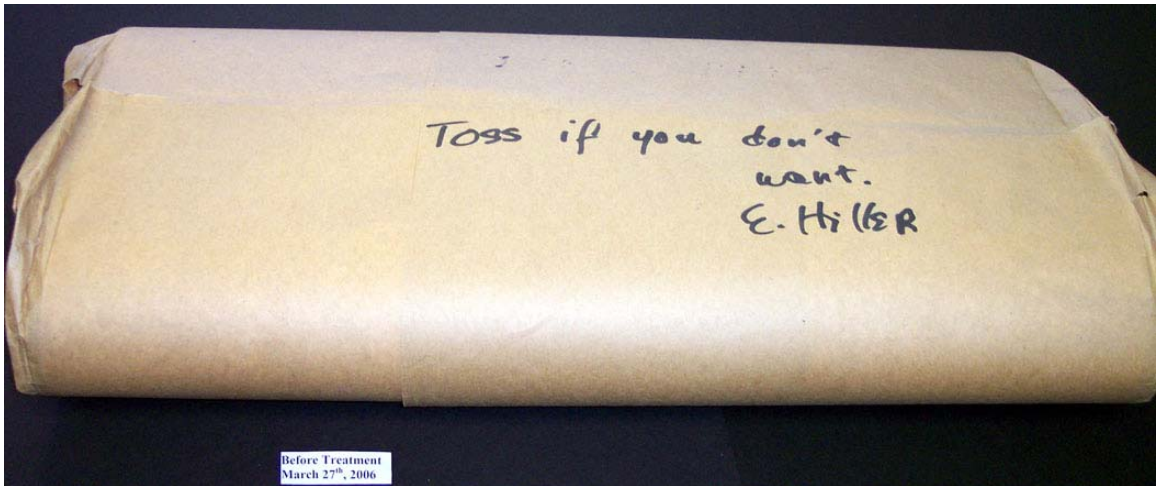 Toss if you don't
want.
E. HillER
Before Treatment
March 27th, 2006